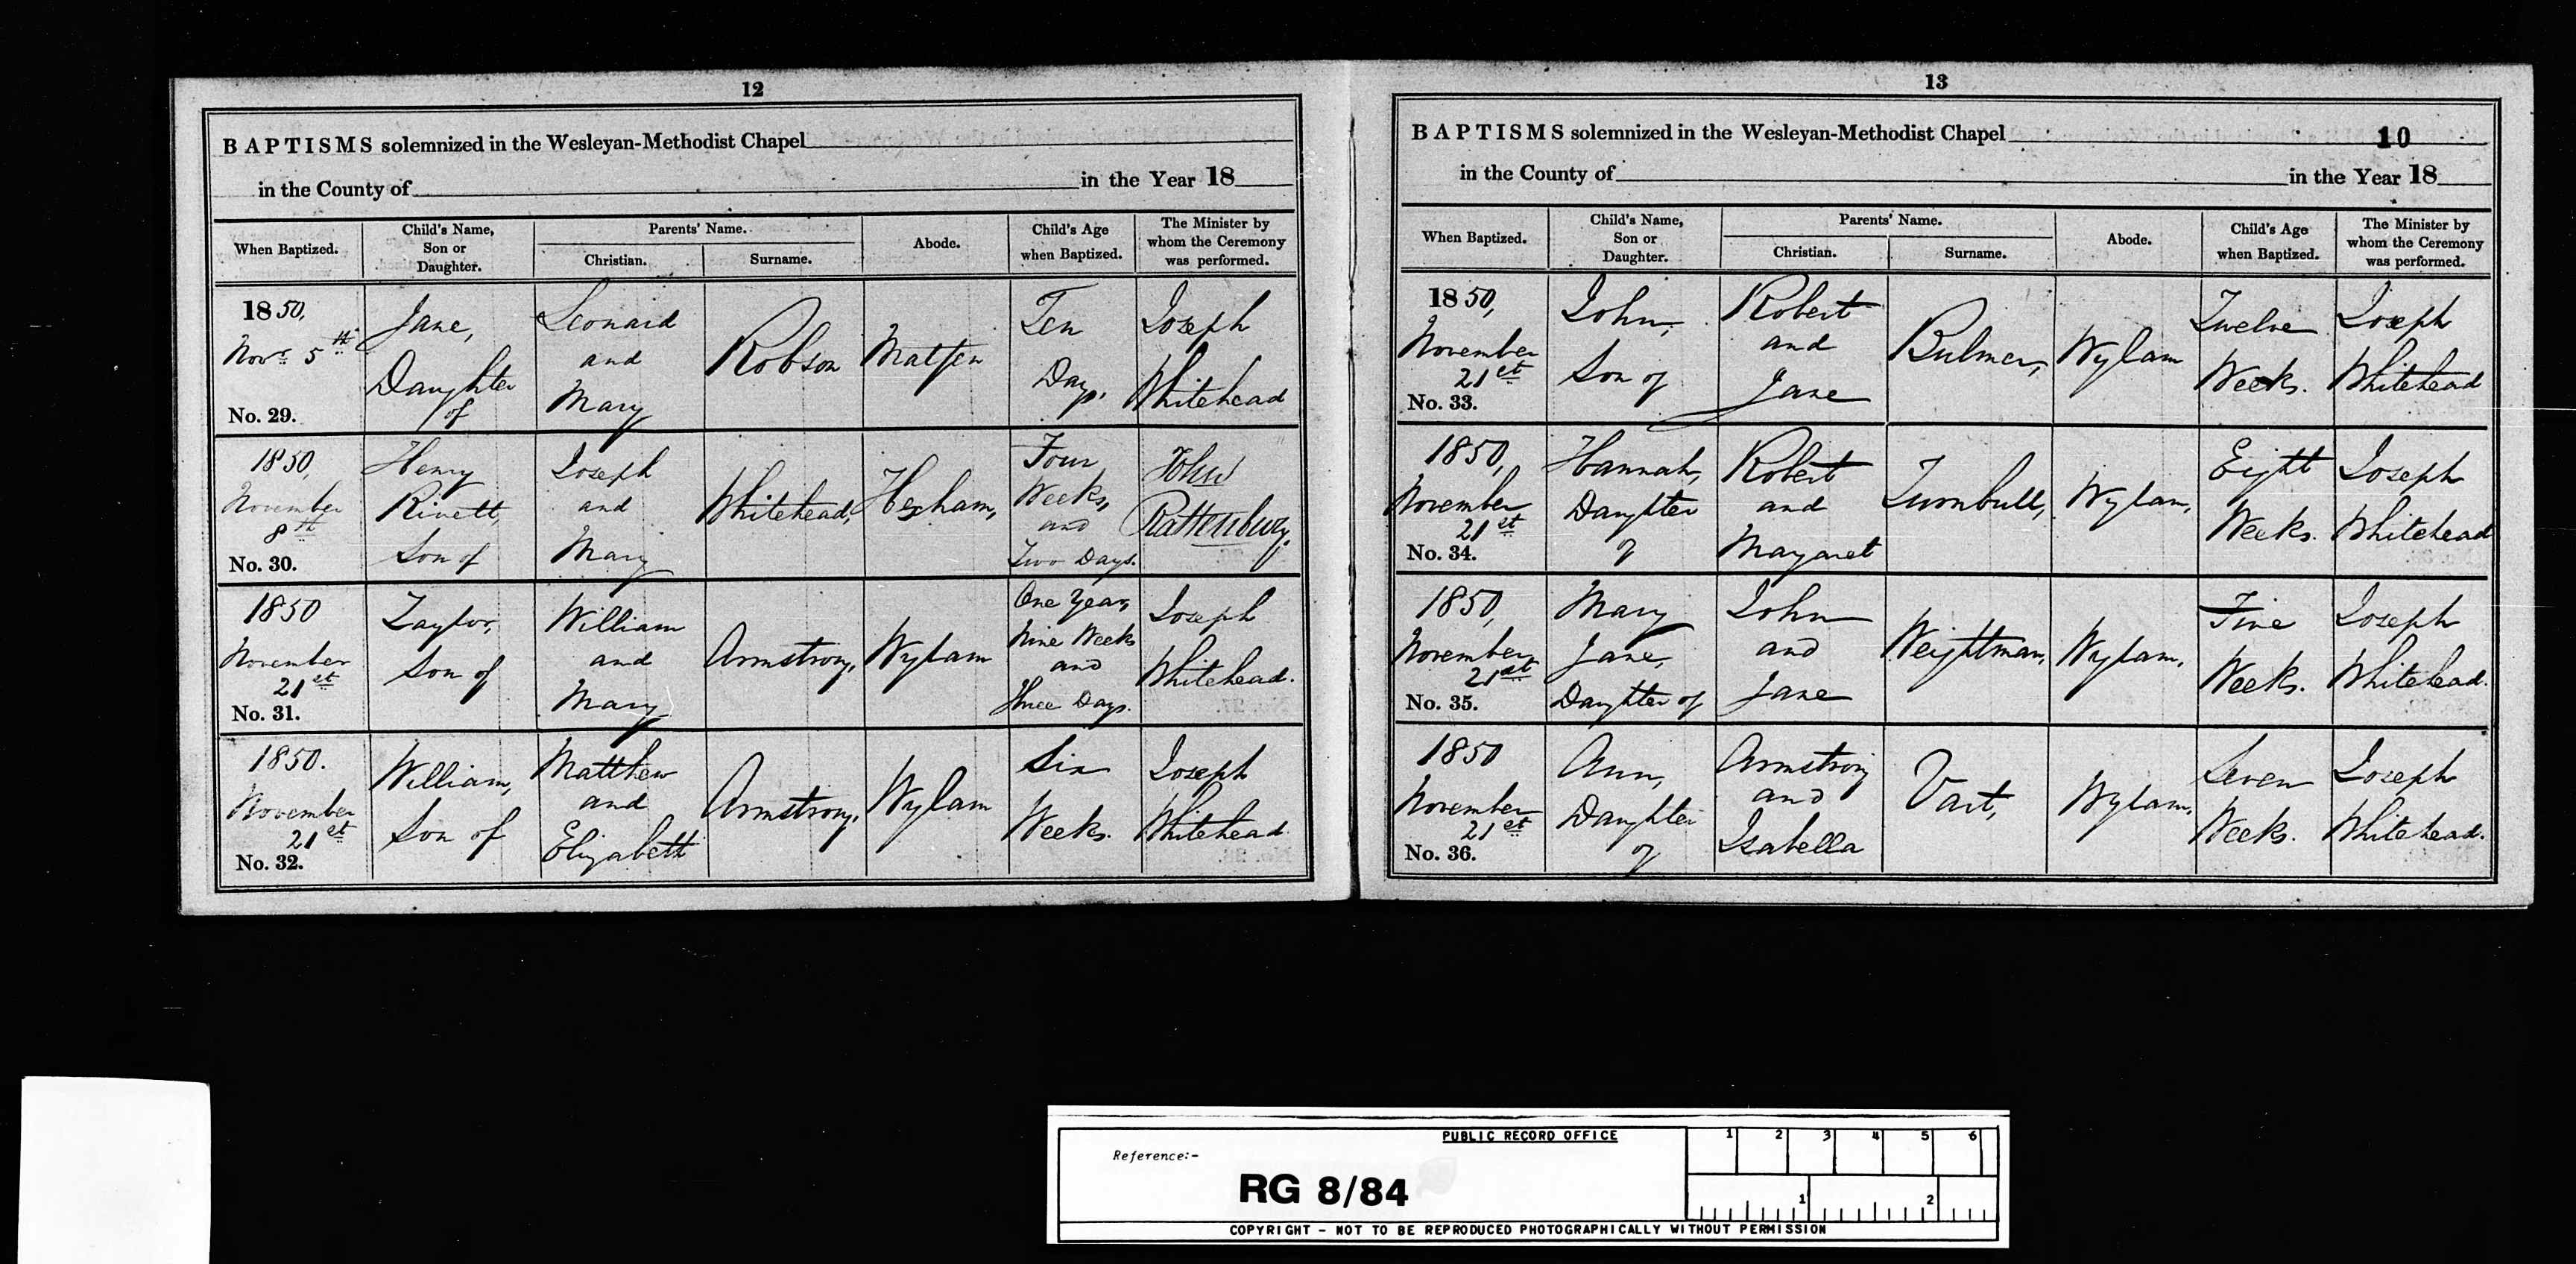 12
BAPTISMS solemnized in the Wesleyan-Methodist Chapel
in the County of in the Year 18
When Baptized. Child's Name, Son or Daughter. Parents' Name. Christian. Surname. Abode. Child's Age when Baptized. The Minister by whom the Ceremony was performed.
1850, Novr 5th No. 29. Jane, Daughter of Leonard and Mary Robson Matfen Ten Days. Joseph Whitehead
1850, November 8th No. 30. Henry Rivett, Son of Joseph and Mary Whitehead, Hexham, Four Weeks, and Two Days. John Rattenbury.
1850 November 21st No. 31. Taylor, Son of William and Mary Armstrong, Wylam One Year, Nine Weeks and Three Days. Joseph Whitehead.
1850. November 21st No. 32. William, Son of Matthew and Elizabeth Armstrong, Wylam Six Weeks. Joseph Whitehead.
13
BAPTISMS solemnized in the Wesleyan-Methodist Chapel 10
in the County of in the Year 18
When Baptized. Child's Name, Son or Daughter. Parents' Name. Christian. Surname. Abode. Child's Age when Baptized. The Minister by whom the Ceremony was performed.
1850, November 21st No. 33. John, Son of Robert and Jane Bulmer, Wylam Twelve Weeks. Joseph Whitehead
1850, November 21st No. 34. Hannah, Daughter of Robert and Margaret Turnbull, Wylam, Eight Weeks. Joseph Whitehead
1850, November 21st No. 35. Mary Jane, Daughter of John and Jane Weightman, Wylam, Five Weeks. Joseph Whitehead.
1850 November 21st No. 36. Ann, Daughter of Armstrong and Isabella Vart, Wylam, Seven Weeks. Joseph Whitehead.
PUBLIC RECORD OFFICE
1 2 3 4 5 6
Reference:-
RG 8/84
1 2
COPYRIGHT - NOT TO BE REPRODUCED PHOTOGRAPHICALLY WITHOUT PERMISSION